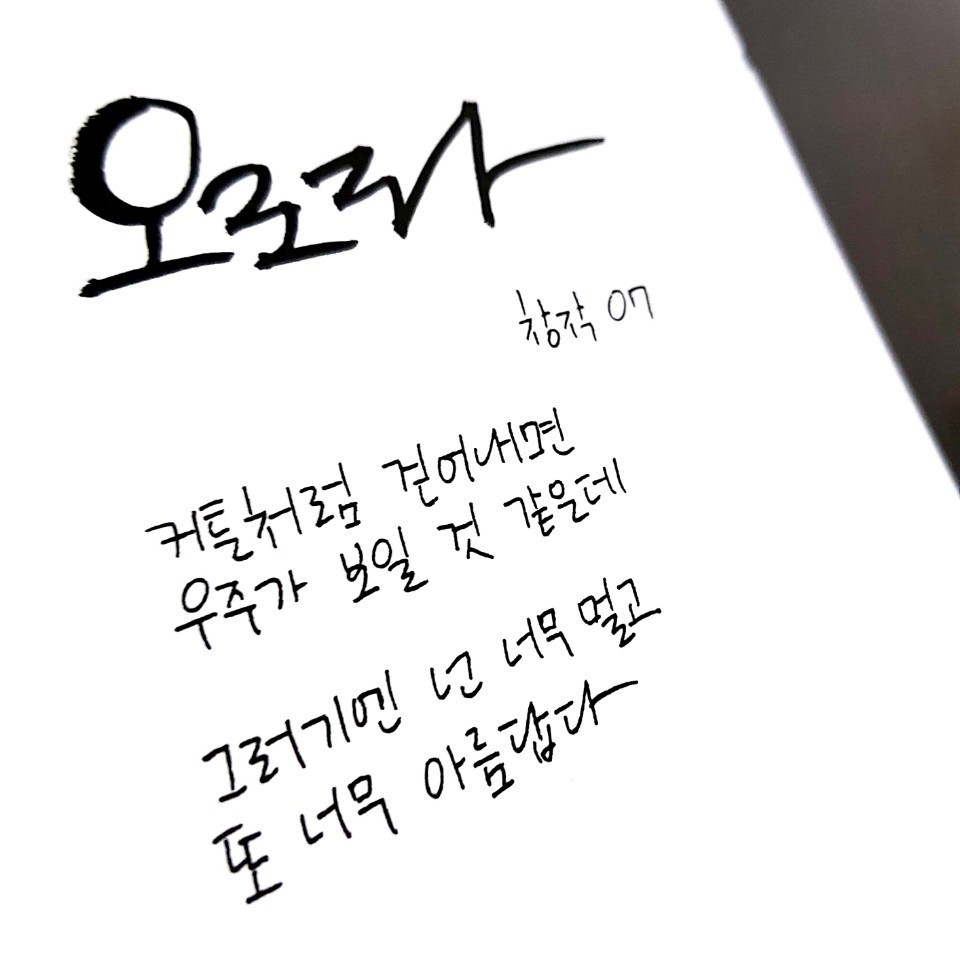 오로라
창작 07
커튼처럼 걷어내면
우주가 보일 것 같은데
그러기엔 넌 너무 멀고
또 너무 아름답다